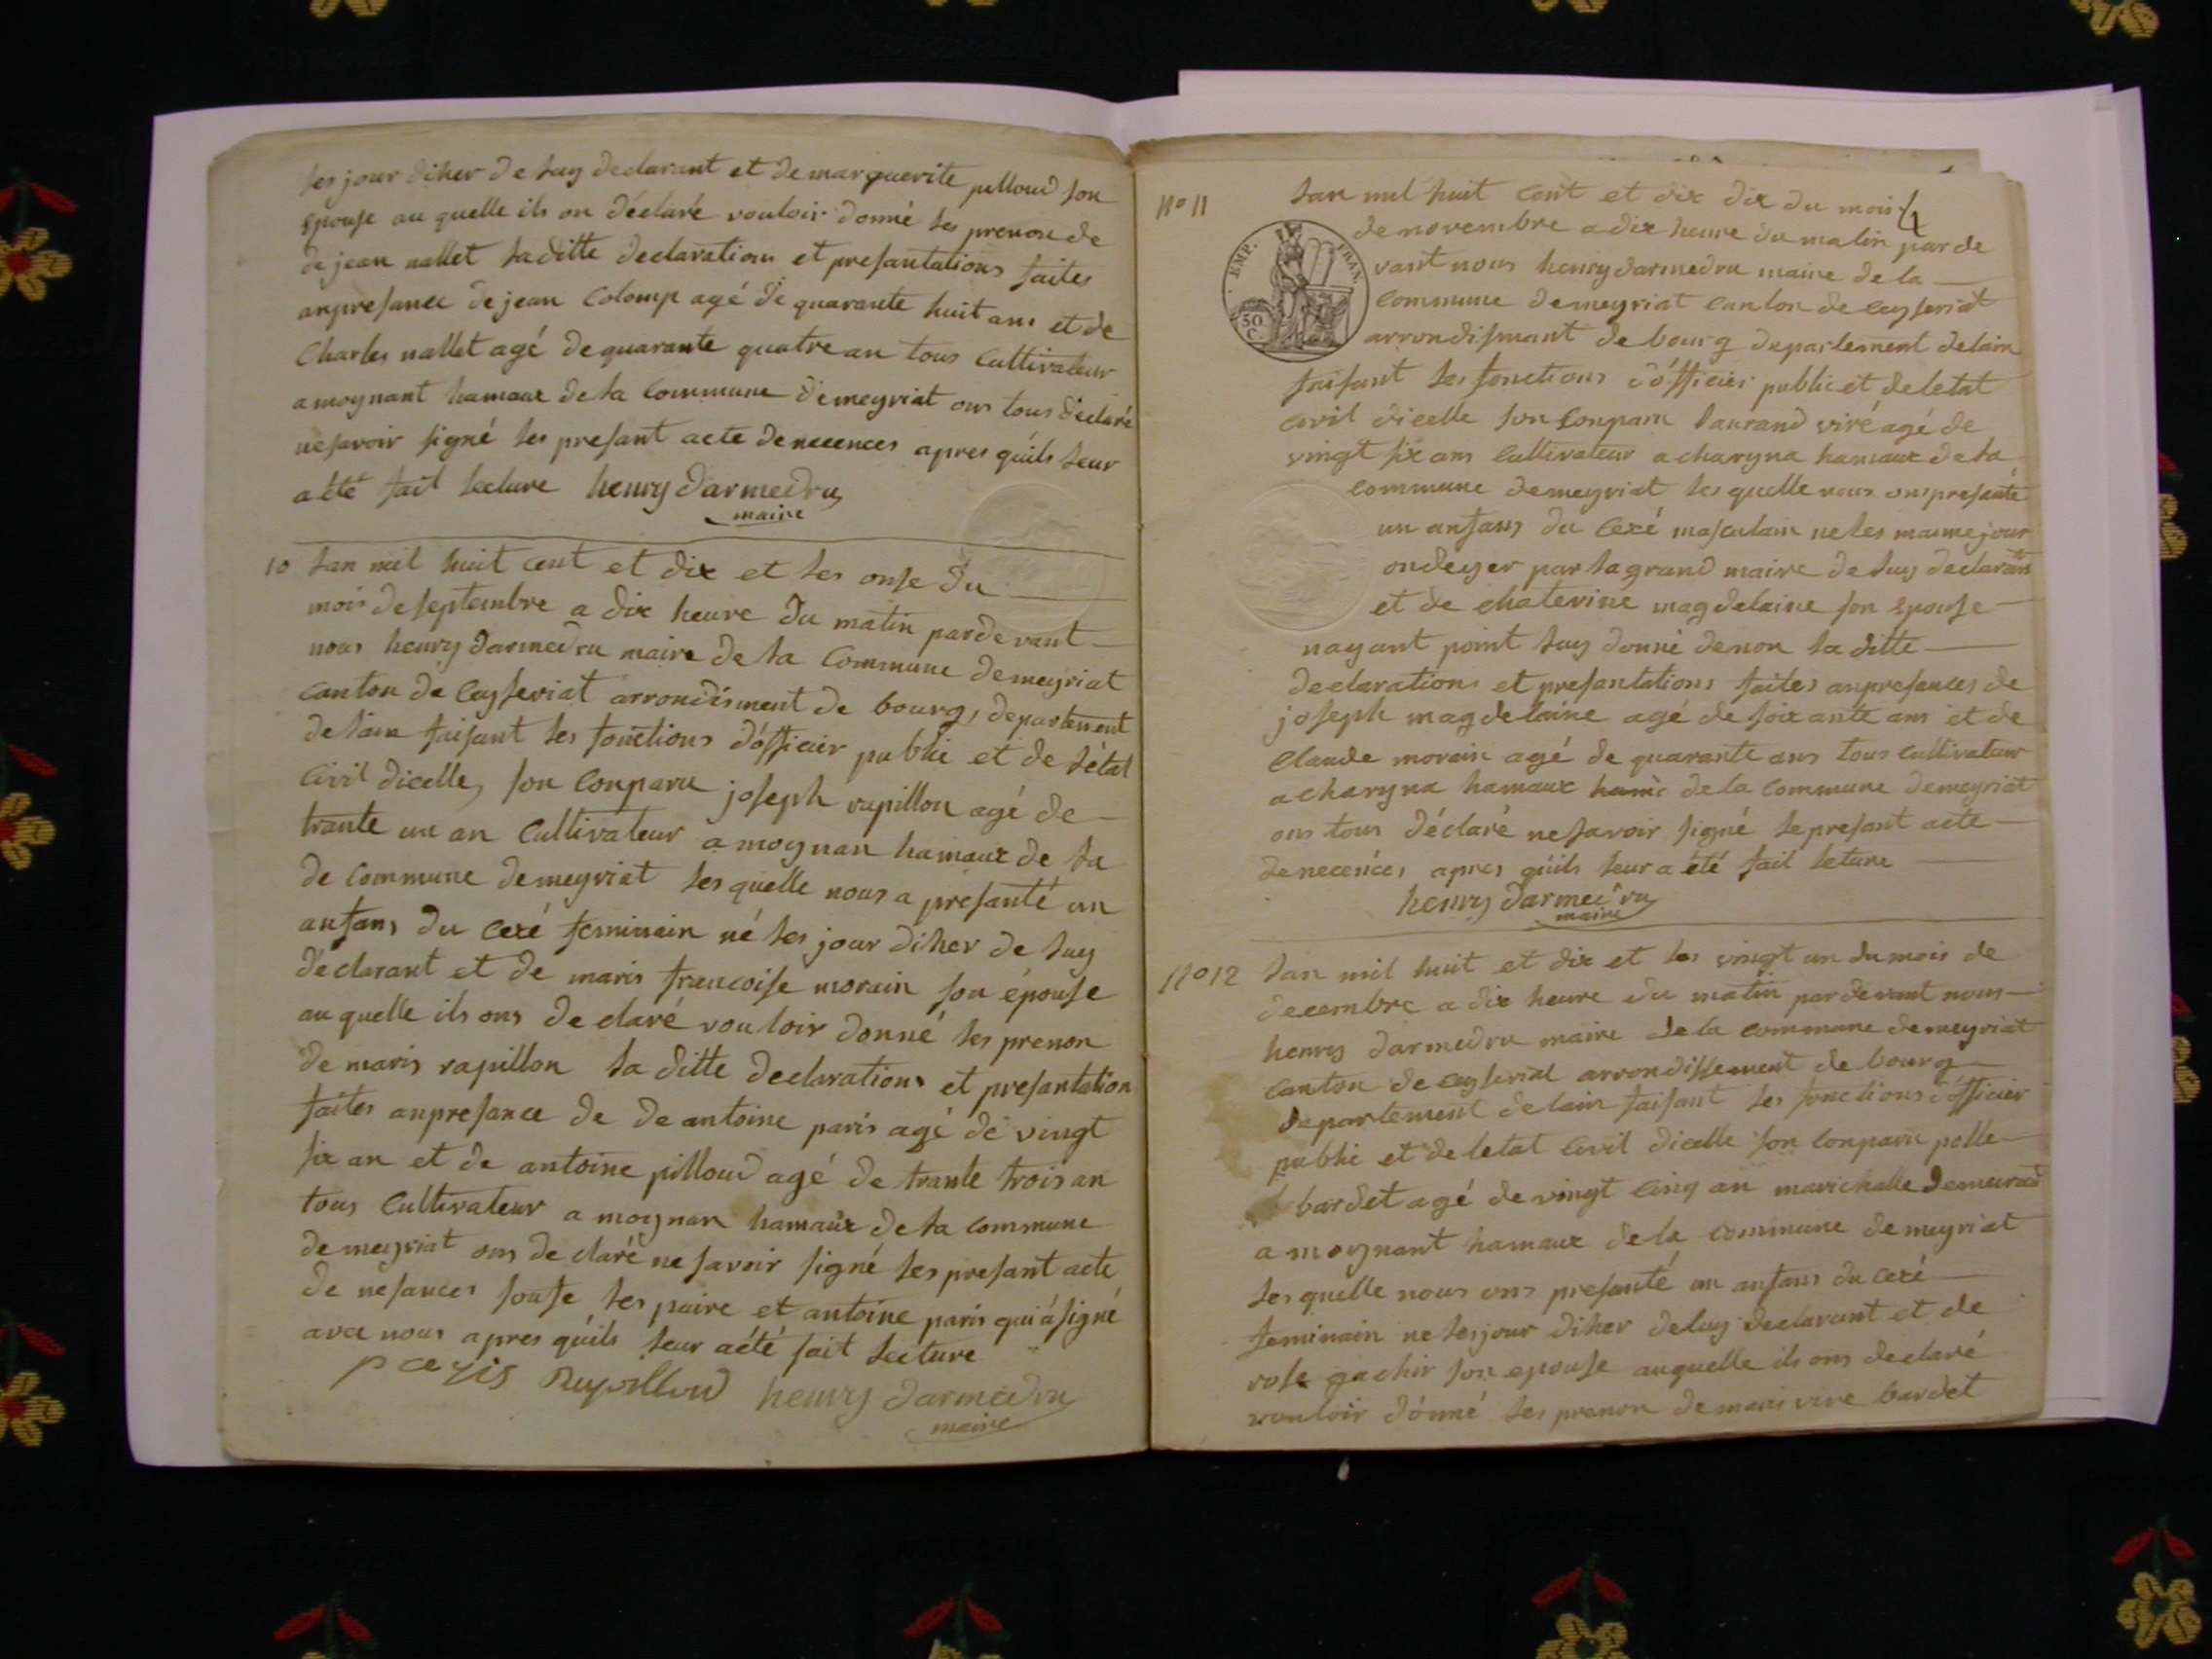 les jour diher de luy declarant et de marguerite pilloud son
epouse au quelle ils on déclaré vouloir donné les prenon de
de jean nallet la ditte declarations et presantations faites
anpresance de jean Colomp agé de quarante huit ans et de
Charles nallet agé de quarante quatre an tous Cultivateur
a moynant hamaux de la Commune de meyriat ons tous déclaré
ne savoir signé les presant acte de necences apres quils leur
a été fait lecture henry darmedru
maire
10 lan mil huit cent et dix et les onse du
mois de septembre a dix heure du matin parde vant
nous henry darmedru maire de la Commune de meyriat
canton de Ceyseriat arrondisment de bourg, departement
de lain faisant les fonctions dófficier public et de létat
Civil dicelle, son Conparu joseph rapillon agé de
trante un an Cultivateur a moynan hamaux de la
de Commune de meyriat les quelle nous a présanté un
anfans du Cexé feminain né les jour diher de luy
déclarant et de maris francoise morain son épouse
au quelle ils ons declaré vouloir donné les prenon
de maris rapillon la ditte declarations et presantation
faites anpresance de de antoine paris agé de vingt
six an et de antoine pilloud agé de trante trois an
tous Cultivateur a moynan hamaux de la Commune
de meyriat ons declaré ne savoir signé les presant acte
de nesances soufe les paire et antoine paris qui á signé
avec nous apres quils leur aété fait lecture
parjis Rupillond henry darmedru
maire
No 11 lan mil huit cent et dix dix du mois 4
de novembre a dix heure du matin par de
vant nous henry darmedru maire de la
Commune de meyriat Canton de Ceyseriat
arrondismant de bourg departement delain
faisant les fonctions dófficier public et deletat
Civil dicelle son Conparu laurand viré agé de
vingt six ans Cultivateur a charyna hamaux de la
Commune de meyriat les quelle nous ons presanté
un anfans du Cexé masculain ne les maime jour
ondeyer par la grand maire de luy declarant
et de chaterine magdelaine son epouse
nayant point luy donné denon la ditte
declarations et presantations faites anpresances de
joseph magdelaine agé de soixante ans et de
Claude morain agé de quarante ans tous Cultivateur
a charyna hamaux hamè de la Commune de meyriat
ons tous déclaré ne savoir signé le presant acte
de necences apres qúils leur a été fait leture
henry darmedru
maire
EMP. FRAN.
50
C.
No 12 lan mil huit et dix et les vingt un du mois de
decembre a dix heure du matin par devant nous
henry darmedru maire de la Commune de meyriat
Canton de Ceyseriat arrondissement de bourg
departement de lain faisant les fonctions dófficier
public et de letat Civil dicelle son Conparu
bardet agé de vingt Cinq an marichalle demeurand
a moynant hamaux de la Commune de meyriat
les quelle nous ons presanté un anfans du Cexé
feminain ne les jour diher de luy declarant et de
rose gachir son epouse auquelle ils ons declaré
vouloir dónné les prenon de maris vire bardet